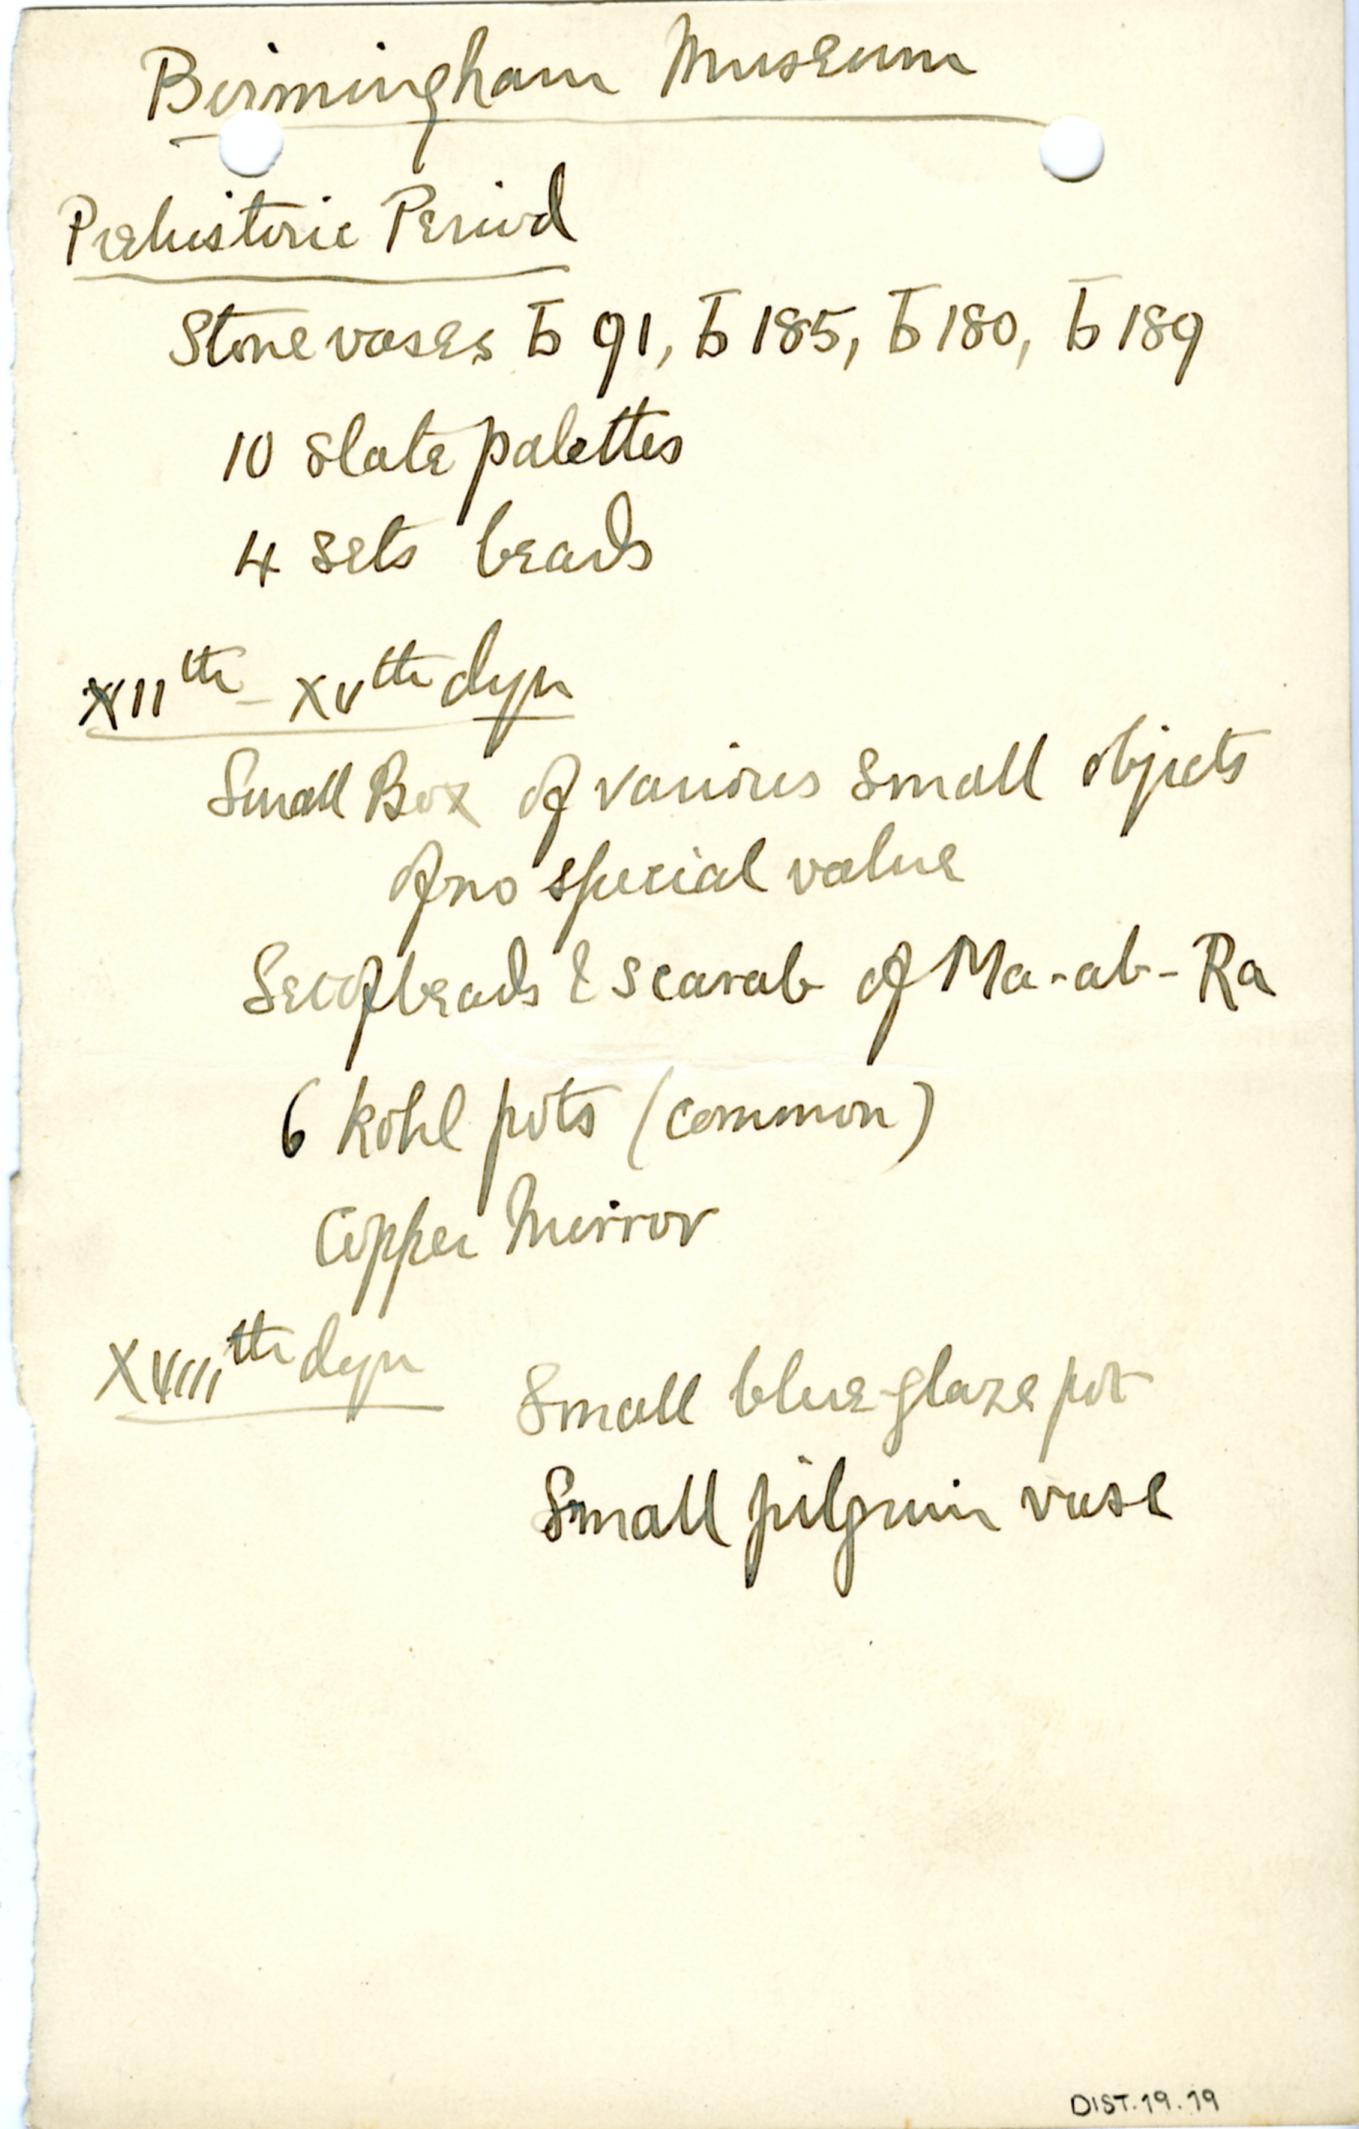 Birmingham Museum
Prehistoric Period
Stone vases b 91, b 185, b 180, b 189
10 slate palettes
4 sets beads
XIIth - XVth dyn
Small Box of various small objects
of no special value
Set of beads & scarab of Ma-ab-Ra
6 Kohl pots (common)
Copper Mirror
XVIIIth dyn
Small blue glaze pot
Small pilgrim vase
DIST.19.19